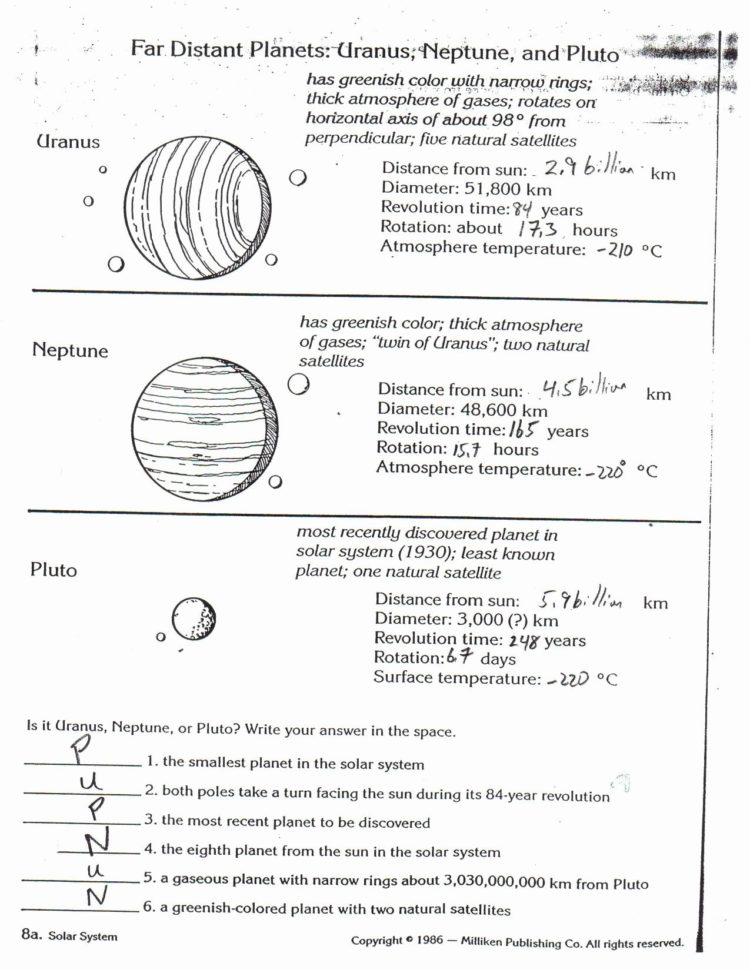 Far Distant Planets: Uranus, Neptune, and Pluto
has greenish color with narrow rings;
thick atmosphere of gases; rotates on
horizontal axis of about 98° from
perpendicular; five natural satellites
Uranus
Distance from sun: 2,9 billion km
Diameter: 51,800 km
Revolution time: 84 years
Rotation: about 17,3 hours
Atmosphere temperature: -210 °C
has greenish color; thick atmosphere
of gases; "twin of Uranus"; two natural
satellites
Neptune
Distance from sun: 4,5 billion km
Diameter: 48,600 km
Revolution time: 165 years
Rotation: 15,7 hours
Atmosphere temperature: -220° °C
most recently discovered planet in
solar system (1930); least known
planet; one natural satellite
Pluto
Distance from sun: 5,9 billion km
Diameter: 3,000 (?) km
Revolution time: 248 years
Rotation: 6.7 days
Surface temperature: -220 °C
Is it Uranus, Neptune, or Pluto? Write your answer in the space.
P 1. the smallest planet in the solar system
U 2. both poles take a turn facing the sun during its 84-year revolution
P 3. the most recent planet to be discovered
N 4. the eighth planet from the sun in the solar system
U 5. a gaseous planet with narrow rings about 3,030,000,000 km from Pluto
N 6. a greenish-colored planet with two natural satellites
8a. Solar System
Copyright © 1986 — Milliken Publishing Co. All rights reserved.